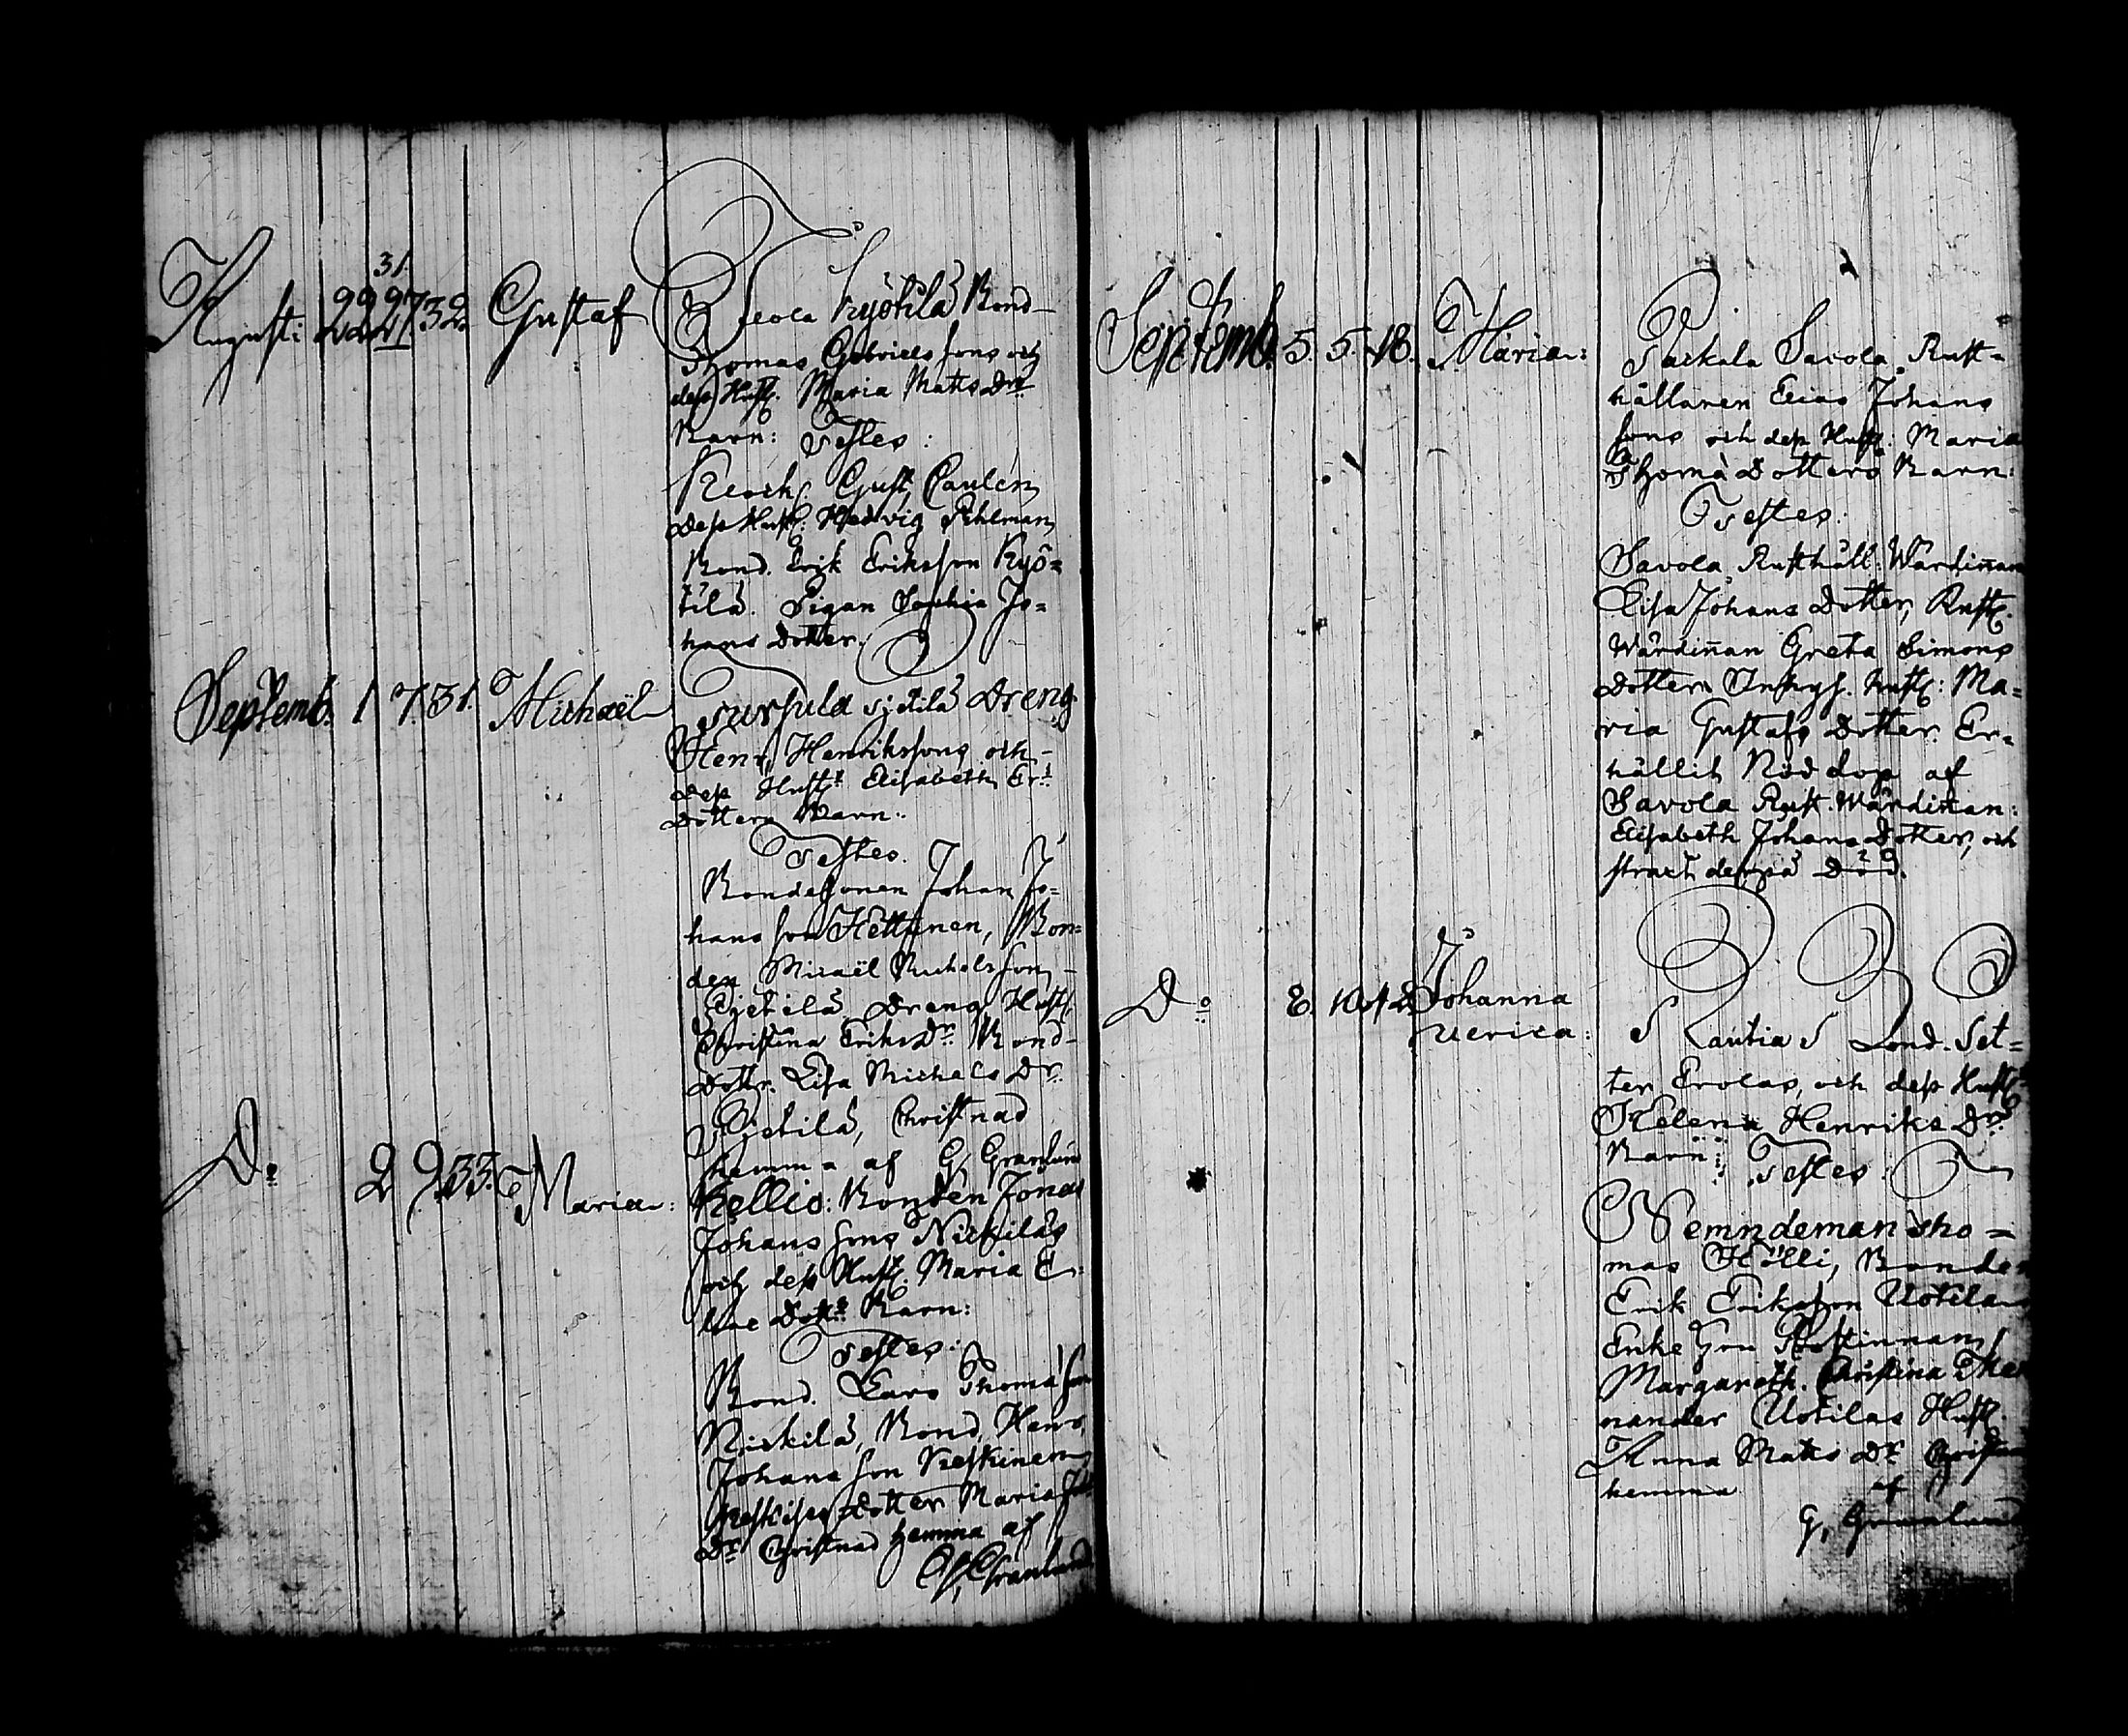 31.
Augusti 29 32 Gustaf
Kyötilä Bond
Thomas Gabriels sons och
dess Hust. Maria Matts Dr
Barn: Testes:
Gust. Caulen
Dess Hust. Hedvig Pihlman
Bond. Erik Eriksson Kyö=
tilä. Pigan Sophia Jo=
hans Dotter.
Septemb. 1 7. 31. Michaël
Sjetilä Dreng
Henr. Henrikssons och
Dess Hust. Elisabeth Er:
Dotters Barn:
Testes.
Bondesonen Johan Jo=
hans son Hettinen, Bon=
den Micaël
Sjetilä, Dreng Hust.
Christina Eriks Dr. Bond
Dottr. Lisa Michels Dr.
Sjetilä, Christnad
hemma af G. Granlund
Do 2 9. 33. Maria:
Kellio: Bonden Jonas
Johans sons Nickiläs
och dess Hust. Maria E
Dottrs Barn:
Testes:
Bond. Lars Thomæ son
Nickilä, Bond. Henr.
Johans son Keskinen
Dotter Maria
Dr Christnad hemma af
G. Granlund
Septemb. 5. 5. 18. Maria:
Paskala Savola Rust=
hållaren Elias Johans
sons och dess Hust: Maria
Thomæ Dotters Barn:
Testes:
Savola Rusthåll. Wärdinnan
Lisa Johans Dotter, Rust.
Wärdinnan Greta Simons
Dotter Inhys. Hust: Ma=
ria Gustafs Dotter. Er=
hållit Nöd dop af
Savola Rust. Wärdinnan:
Elisabeth Johans Dotter, och
strart derpå Död.
Do 8. 10. 42. Johanna
Ulrica:
Lautia Lond. Set=
ter Erolas, och dess Hust
Helena Henriks Dr
Barn: Testes:
Nemndeman Tho=
mas Hölli, Bonden
Erik Eriksson Uotila
Enke Fru Prostinnan
Margareth. Christina
nander Uotilas Hust.
Anna Matts Dr
hemma af
G. Granlund